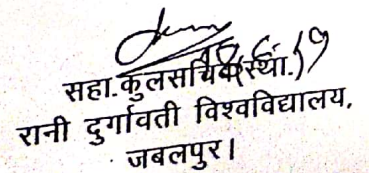 18.6.19
सहा.कुलसचिव(स्था.)
रानी दुर्गावती विश्वविद्यालय,
जबलपुर।